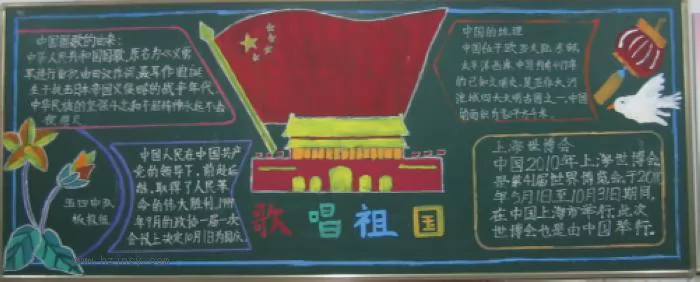 中国国歌的由来:
中华人民共和国国歌,原名为《义勇
军进行曲》,由田汉作词,聂耳作曲,诞
生于抗击日本帝国义侵略的战争年代。
中华民族的坚强斗志和不屈精神永远不会
中国的地理
中国位于欧亚大陆东部,
太平洋西岸,中国
上海世博会
中国2010年上海世博会
是第41届世界博览会.于2010
年5月1日至10月31日期间,
在中国上海市举行.此次
世博会也是由中国举行.
中国人民在中国共产
党的领导下,前赴后
继,取得了人民革
命的伟大胜利.1949
年9月的政协一届一次
会议上决定10月1日为国庆.
五四中队
板报组
歌唱祖国